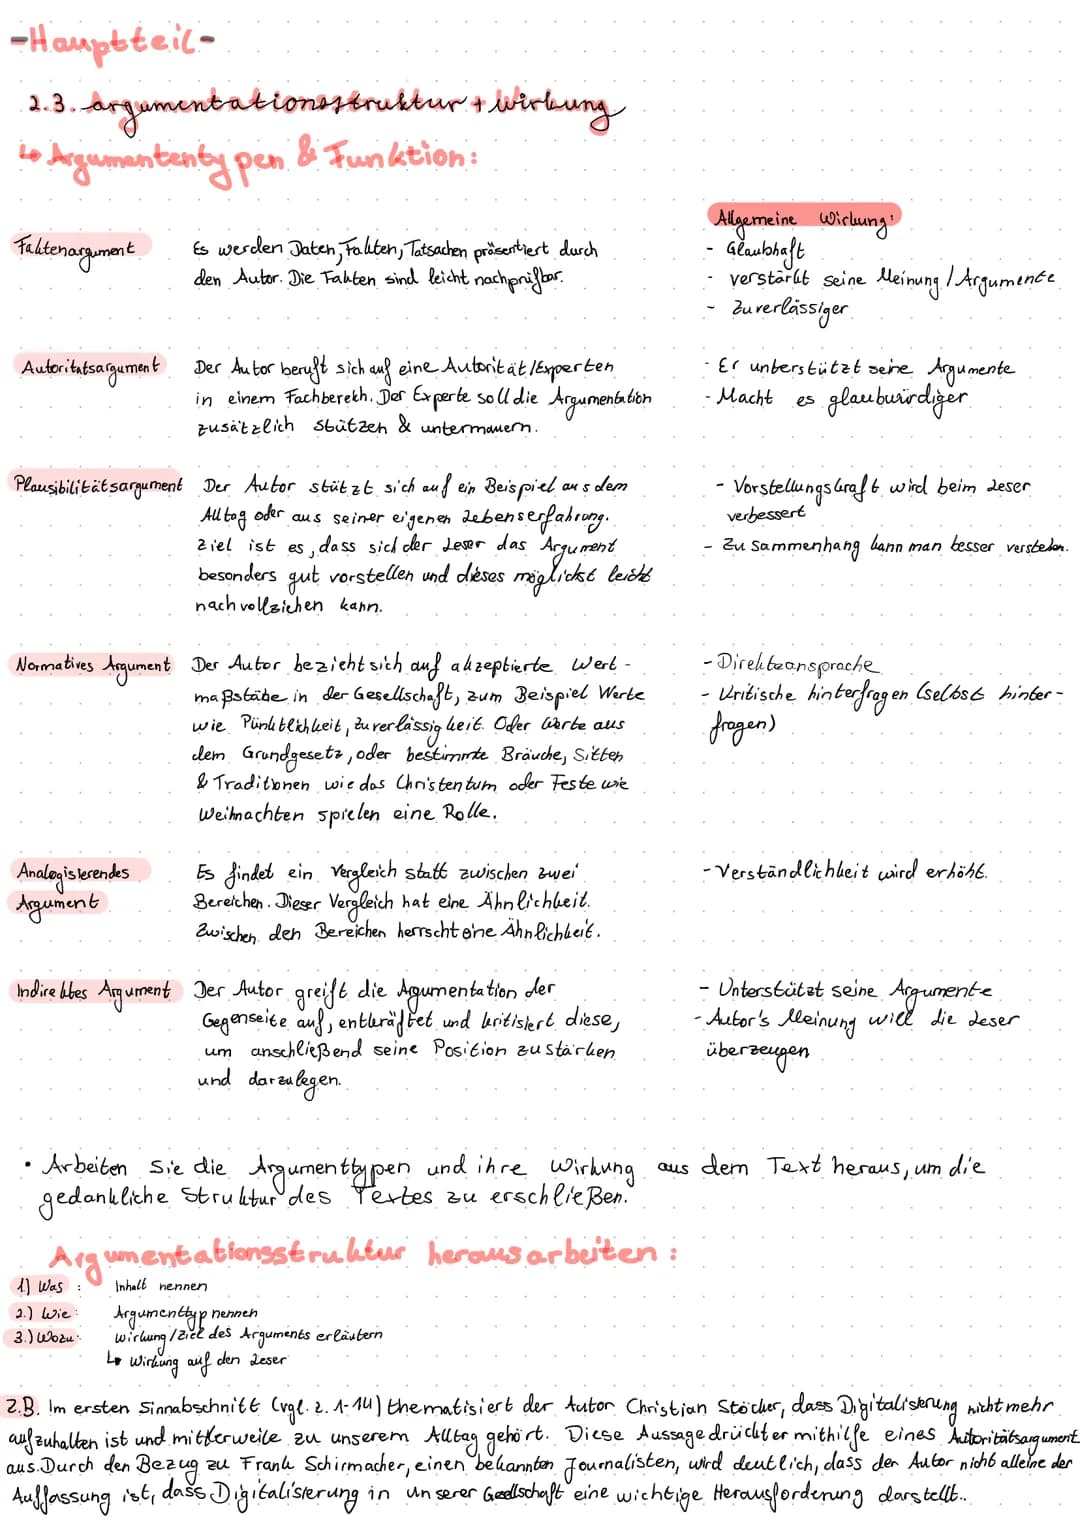 -Hauptteil-
2.3. Argumentationsstruktur + Wirkung
↳ Argumententypen & Funktion:
Allgemeine Wirkung:
Faktenargument Es werden Daten, Fakten, Tatsachen präsentiert durch - Glaubhaft
den Autor. Die Fakten sind leicht nachprüfbar. - verstärkt seine Meinung / Argumente
- Zuverlässiger
Autoritätsargument Der Autor beruft sich auf eine Autorität/Experten - Er unterstützt seine Argumente
in einem Fachbereich. Der Experte soll die Argumentation - Macht es glaubwürdiger
zusätzlich stützen & untermauern.
Plausibilitätsargument Der Autor stützt sich auf ein Beispiel aus dem - Vorstellungskraft wird beim Leser
Alltag oder aus seiner eigenen Lebenserfahrung. verbessert
Ziel ist es, dass sich der Leser das Argument - Zusammenhang kann man besser verstehen.
besonders gut vorstellen und dieses möglichst leicht
nachvollziehen kann.
Normatives Argument Der Autor bezieht sich auf akzeptierte Wert- - Direkteansprache
maßstäbe in der Gesellschaft, zum Beispiel Werte - Kritische hinterfragen (selbst hinter-
wie Pünktlichkeit, Zuverlässigkeit. Oder Werte aus fragen)
dem Grundgesetz, oder bestimmte Bräuche, Sitten
& Traditionen wie das Christentum oder Feste wie
Weihnachten spielen eine Rolle.
Analogisierendes Es findet ein Vergleich statt zwischen zwei - Verständlichkeit wird erhöht.
Argument Bereichen. Dieser Vergleich hat eine Ähnlichkeit.
Zwischen den Bereichen herrscht eine Ähnlichkeit.
Indirektes Argument Der Autor greift die Agumentation der - Unterstützt seine Argumente
Gegenseite auf, entkräftet und kritisiert diese, - Autor's Meinung will die Leser
um anschließend seine Position zu stärken überzeugen
und darzulegen.
• Arbeiten Sie die Argumenttypen und ihre Wirkung aus dem Text heraus, um die
gedankliche Struktur des Textes zu erschließen.
Argumentationsstruktur herausarbeiten:
1.) Was: Inhalt nennen
2.) Wie: Argumenttyp nennen
3.) Wozu: Wirkung/Ziel des Arguments erläutern
↳ Wirkung auf den Leser
Z.B. Im ersten Sinnabschnitt (vgl. Z. 1-14) thematisiert der Autor Christian Stöcker, dass Digitalisierung nicht mehr
aufzuhalten ist und mittlerweile zu unserem Alltag gehört. Diese Aussage drückt er mithilfe eines Autoritätsargument
aus. Durch den Bezug zu Frank Schirmacher, einen bekannten Journalisten, wird deutlich, dass der Autor nicht alleine der
Auffassung ist, dass Digitalisierung in unserer Gesellschaft eine wichtige Herausforderung darstellt..